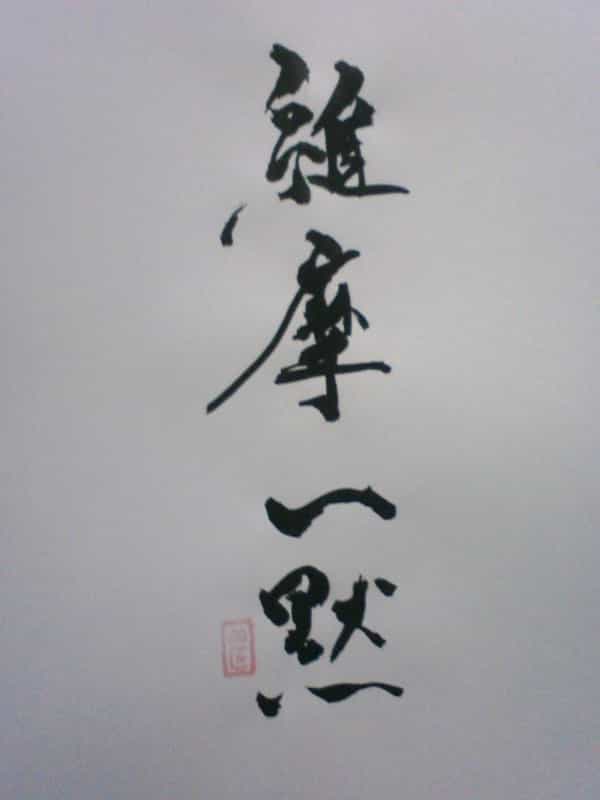 維摩一默